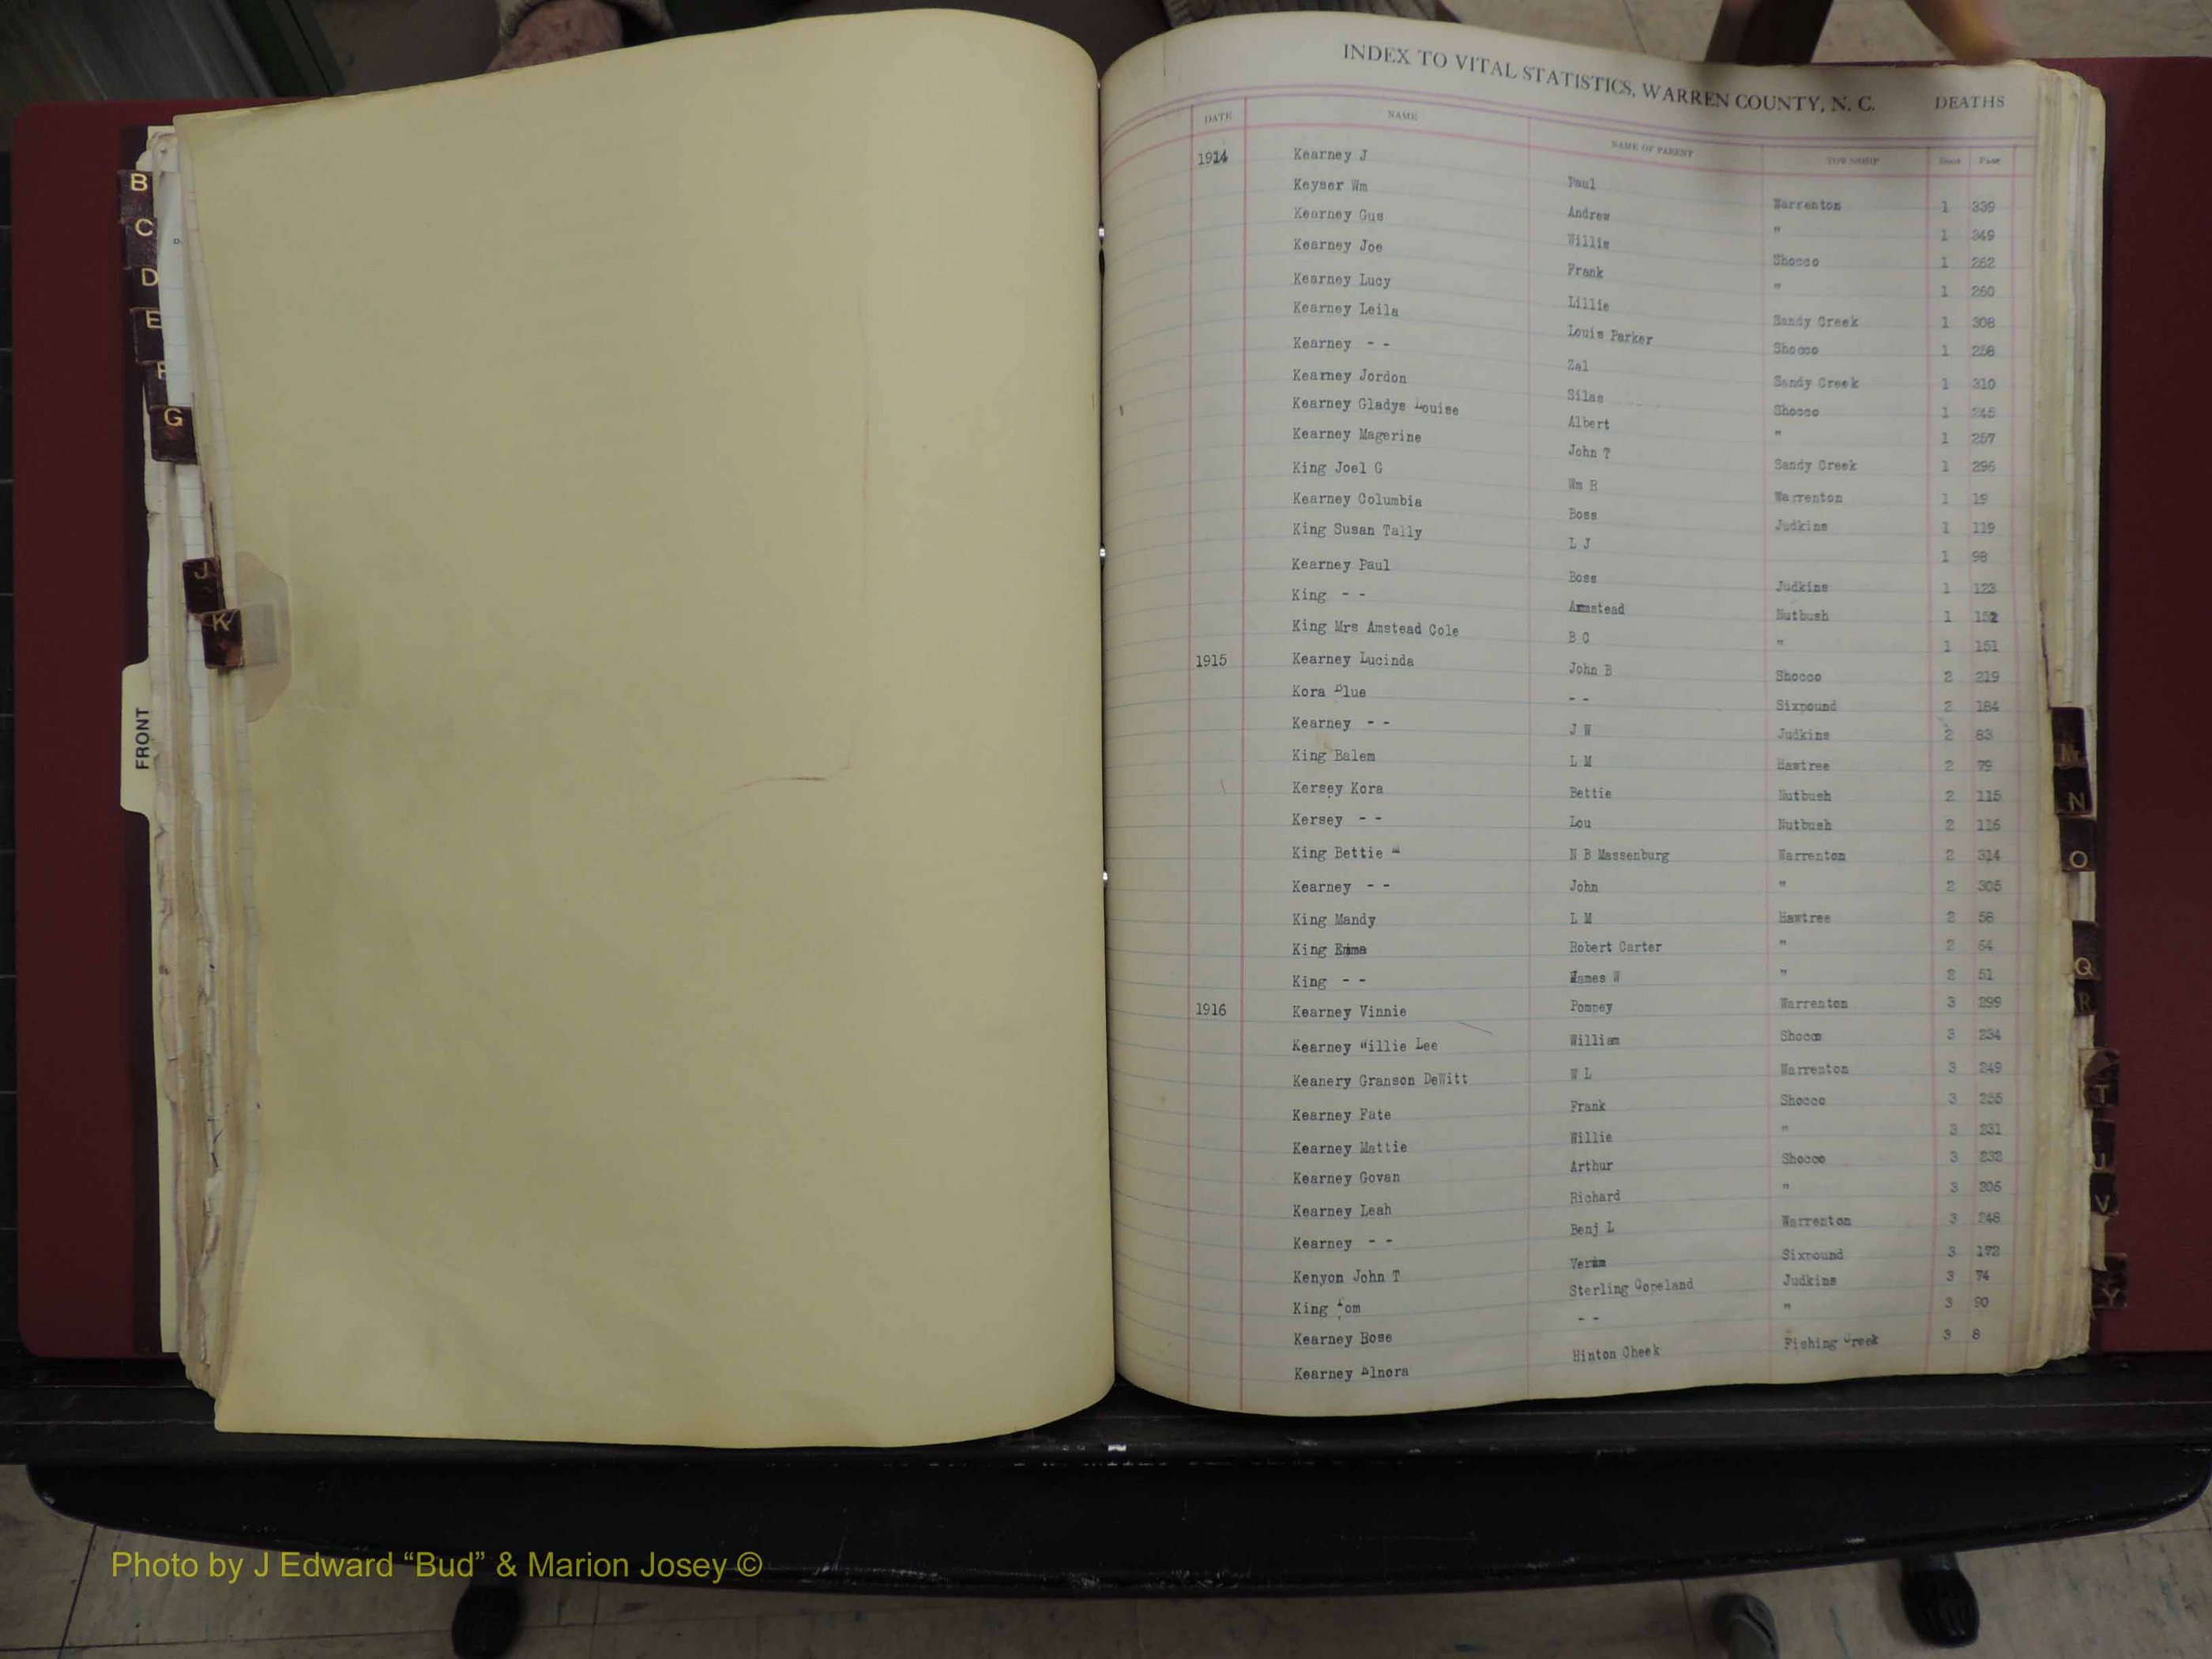 INDEX TO VITAL STATISTICS, WARREN COUNTY, N. C. DEATHS
DATE NAME NAME OF PARENT TOWNSHIP Book Page
1914 Kearney J Paul Warrenton 1 339
Keyser Wm Andrew " 1 349
Kearney Gus Willis Shocco 1 262
Kearney Joe Frank " 1 260
Kearney Lucy Lillie Sandy Creek 1 308
Kearney Leila Louis Parker Shocco 1 258
Kearney - - Zal Sandy Creek 1 310
Kearney Jordon Silas Shocco 1 245
Kearney Gladys Louise Albert " 1 257
Kearney Magerine John T Sandy Creek 1 296
King Joel G Wm R Warrenton 1 19
Kearney Columbia Boss Judkins 1 119
King Susan Tally L J 1 98
Kearney Paul Boss Judkins 1 123
King - - Armstead Nutbush 1 152
King Mrs Amstead Cole B C " 1 151
1915 Kearney Lucinda John B Shocco 2 219
Kora Blue - - Sixpound 2 184
Kearney - - J W Judkins 2 63
King Balem L M Hawtree 2 79
Kersey Kora Bettie Nutbush 2 115
Kersey - - Lou Nutbush 2 116
King Bettie M N B Massenburg Warrenton 2 314
Kearney - - John " 2 305
King Mandy L M Hawtree 2 58
King Emma Robert Carter " 2 54
King - - James W " 2 51
1916 Kearney Vinnie Pompey Warrenton 3 299
Kearney Willie Lee William Shocco 3 234
Keanery Granson DeWitt W L Warrenton 3 249
Kearney Fate Frank Shocco 3 255
Kearney Mattie Willie " 3 231
Kearney Govan Arthur Shocco 3 232
Kearney Leah Richard " 3 206
Kearney - - Benj L Warrenton 3 248
Kenyon John T Sixpound 3 172
King Tom Sterling Copeland Judkins 3 74
Kearney Rose - - " 3 90
Kearney Alnora Hinton Cheek Fishing Creek 3 8
B
C
D
E
F
G
J
K
FRONT
N
O
Q
R
T
U
V
Y
Photo by J Edward “Bud” & Marion Josey ©